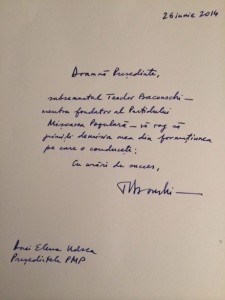 26 iunie 2014
Doamnă Președinte,
subsemnatul Teodor Baconschi —
membru fondator al Partidului
Mișcarea Populară — vă rog să
primiți demisia mea din formațiunea
pe care o conduceți.
Cu urări de succes,
Dnei Elena Udrea
Președintele PMP